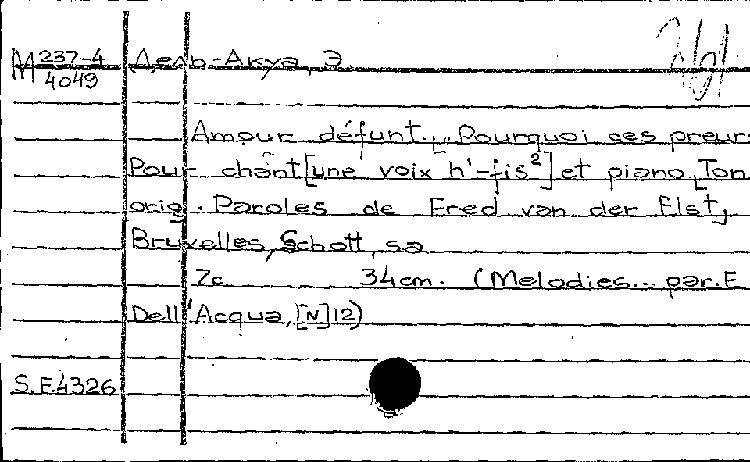 М 237-4 Дель-Аква, Э
4049
Amour défunt... Pourquoi ces preur
Pour chant [une voix h'-fis²] et piano [Ton
orig. Paroles de Fred van der Elst,
Bruxelles, Schott, sa
7c 34cm. (Melodies... par. E
Dell'Acqua, [N] 12)
S.F.4326